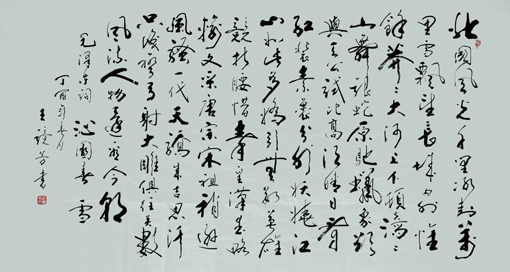 北國風光千里冰封萬
里雪飄望長城內外惟
餘莽莽大河上下頓失滔滔
山舞銀蛇原馳蠟象欲
與天公試比高須晴日看
紅裝素裹分外妖嬈江
山如此多嬌引無數英雄
競折腰惜秦皇漢武略
輸文采唐宗宋祖稍遜
風騷一代天驕成吉思汗
只識彎弓射大雕俱往矣數
風流人物還看今朝
毛澤東詞 沁園春 雪
丁酉年 月
王 書